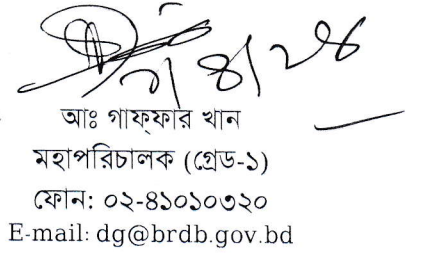 আঃ গাফ্‌ফার খান
মহাপরিচালক (গ্রেড-১)
ফোন: ০২-৪১০১০৩২০
E-mail: dg@brdb.gov.bd